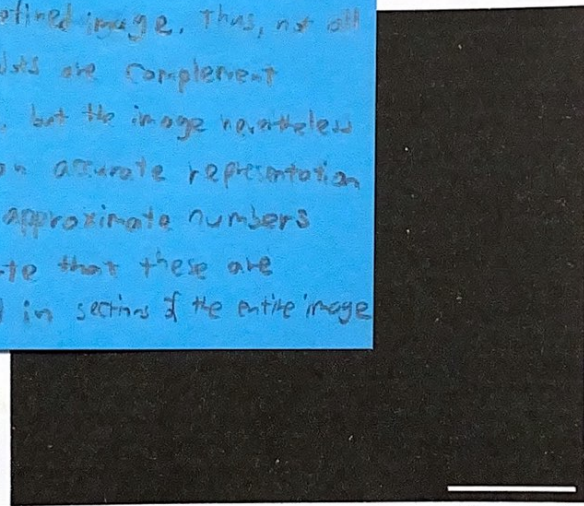 efined image. Thus, not all
are complement
but the image nevertheless
accurate representation
approximate numbers
te that these are
in sections of the entire image